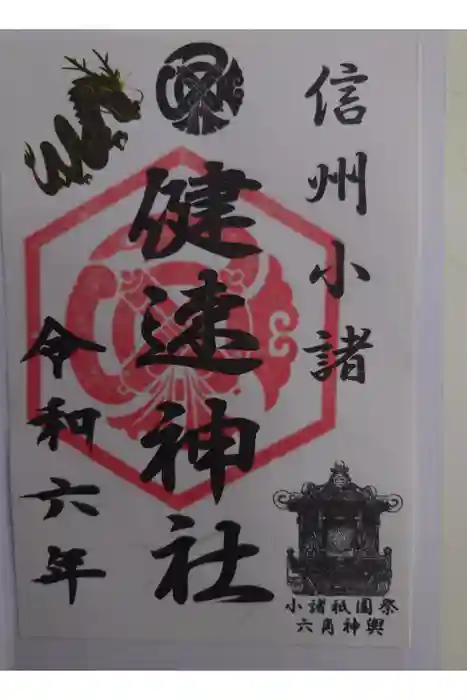 信州小諸
健速神社
令和六年
小諸祇園祭
六角神輿